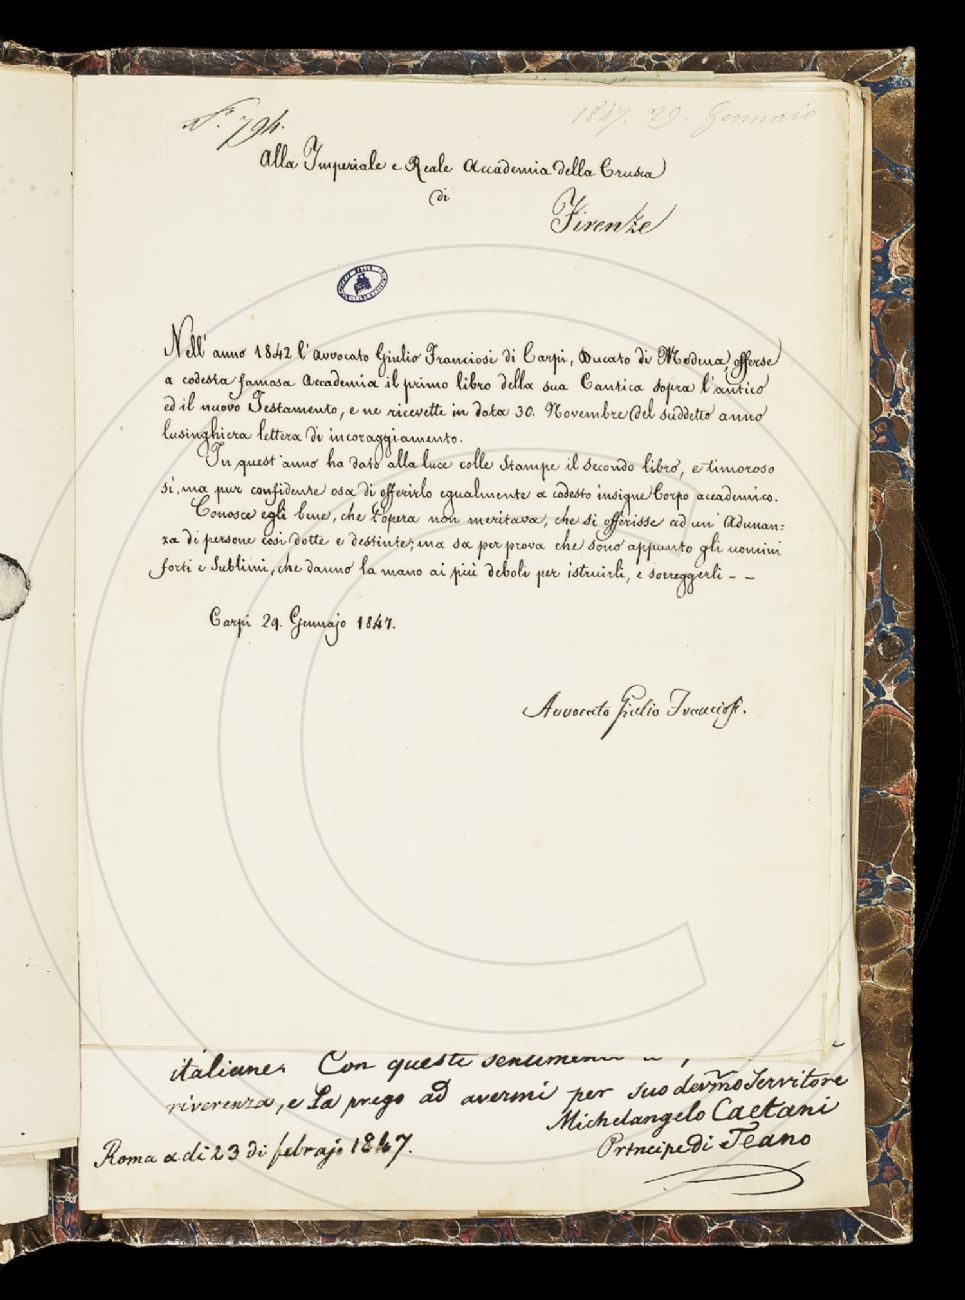 N.º 794.
1847. 29. Gennaio
Alla Imperiale e Reale Accademia della Crusca
di
Firenze
Nell' anno 1842 l' Avvocato Giulio Franciosi di Carpi, Ducato di Modena, offerse
a codesta famosa Accademia il primo libro della sua Cantica sopra l' antico
ed il nuovo Testamento, e ne ricevette in data 30. Novembre del suddetto anno
lusinghiera lettera di incoraggiamento.
In quest' anno ha dato alla luce colle stampe il secondo libro, e timoroso
sì, ma pur confidente osa di offerirlo egualmente a codesto insigne Corpo accademico.
Conosce egli bene, che l' opera non meritava, che si offerisse ad un' Adunan=
za di persone così dotte e distinte; ma sa per prova che sono appunto gli uomini
forti e sublimi, che danno la mano ai più deboli per istruirli, e sorreggerli - -
Carpi 29. Gennajo 1847.
Avvocato Giulio Franciosi.
italiane. Con questi sentimenti
riverenza, e La prego ad avermi per suo devmo Servitore
Michelangelo Caetani
Principe di Teano
Roma a di 23 di febrajo 1847.